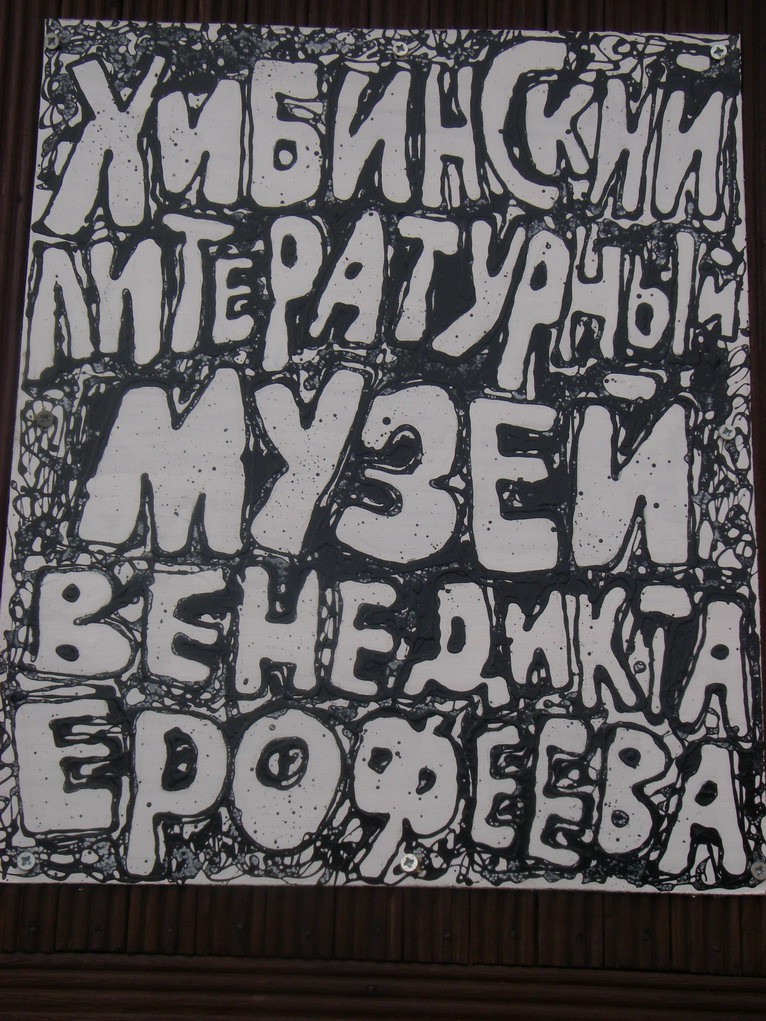 ХИБИНСКИЙ
ЛИТЕРАТУРНЫЙ
МУЗЕЙ
ВЕНЕДИКТА
ЕРОФЕЕВА